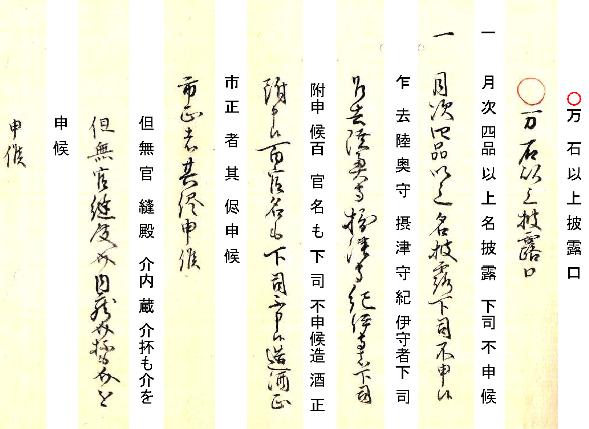 ○万石以上披露口
○万石以上披露口
一 月次四品以上名披露 下司不申候
一 月次四品以上名披露下司不申候
乍去陸奥守 摂津守紀伊守者下司
乍去陸奥守摂津守紀伊守者下司
附申候百官名も下司不申候造酒正
附申候百官名も下司不申候造酒正
市正者其侭申候
市正者其侭申候
但無官縫殿介内蔵介抔も介を
但無官縫殿介内蔵介抔も介を
申候
申候